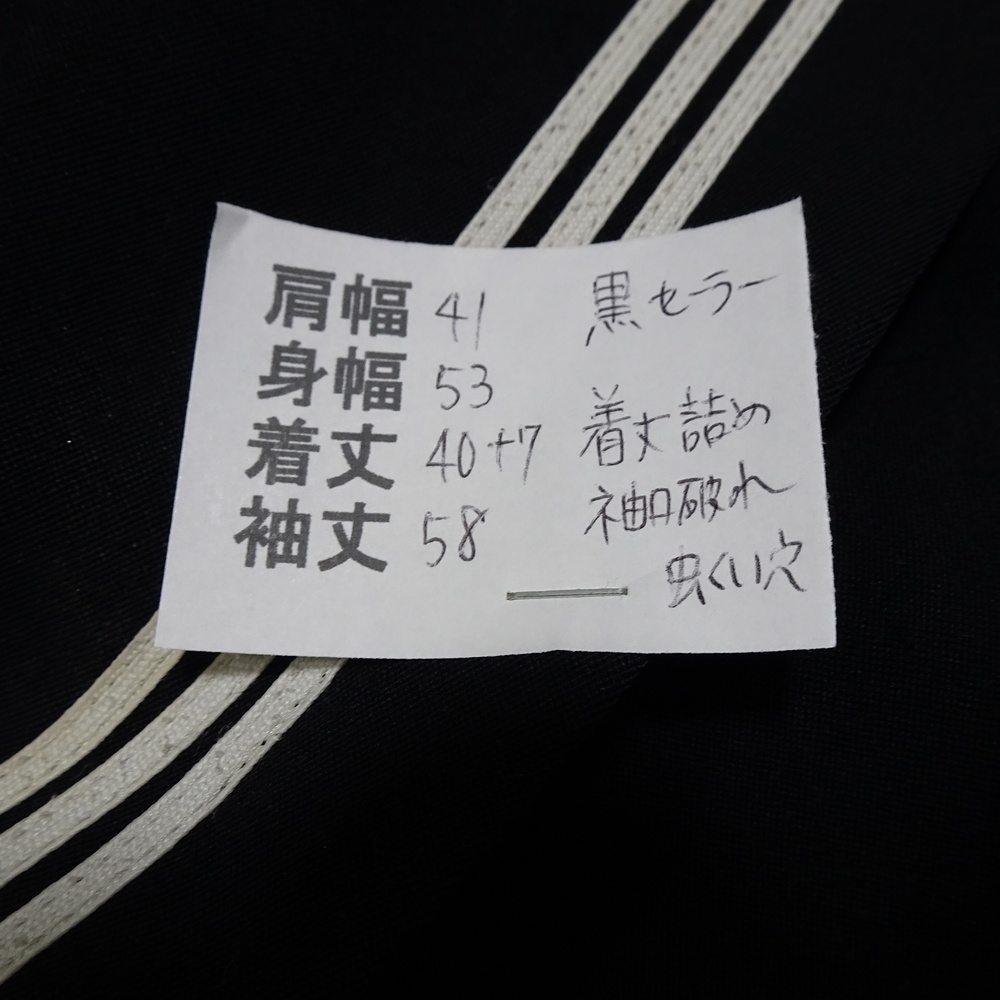 肩幅 41
身幅 53
着丈 40+7
袖丈 58
黒セーラー
着丈詰め
袖口破れ
虫くい穴